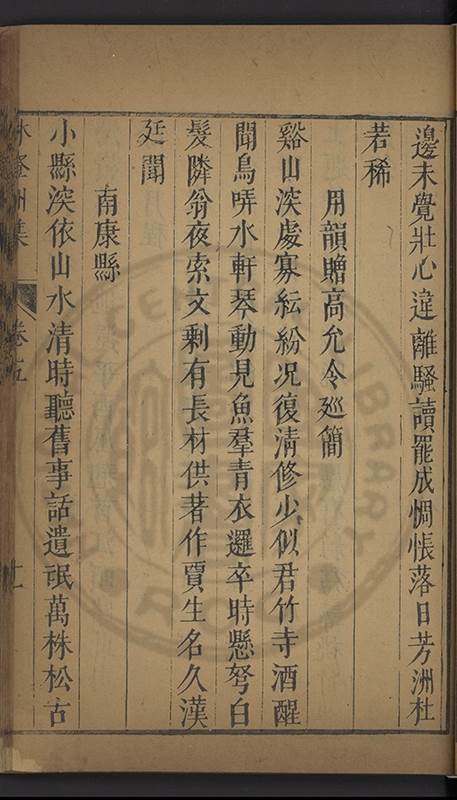 邊未覺壯心違離騷讀罷成惆悵落日芳洲杜
若稀
用韻贈高允令廵簡
谿山深處寡紜紛况復清修少似君竹寺酒醒
聞鳥哢水軒琴動見魚羣青衣邏卒時懸弩白
髮隣翁夜索文剩有長材供著作賈生名久漢
廷聞
南康縣
小縣深依山水清時聽舊事話遺氓萬株松古
集 卷五
十一